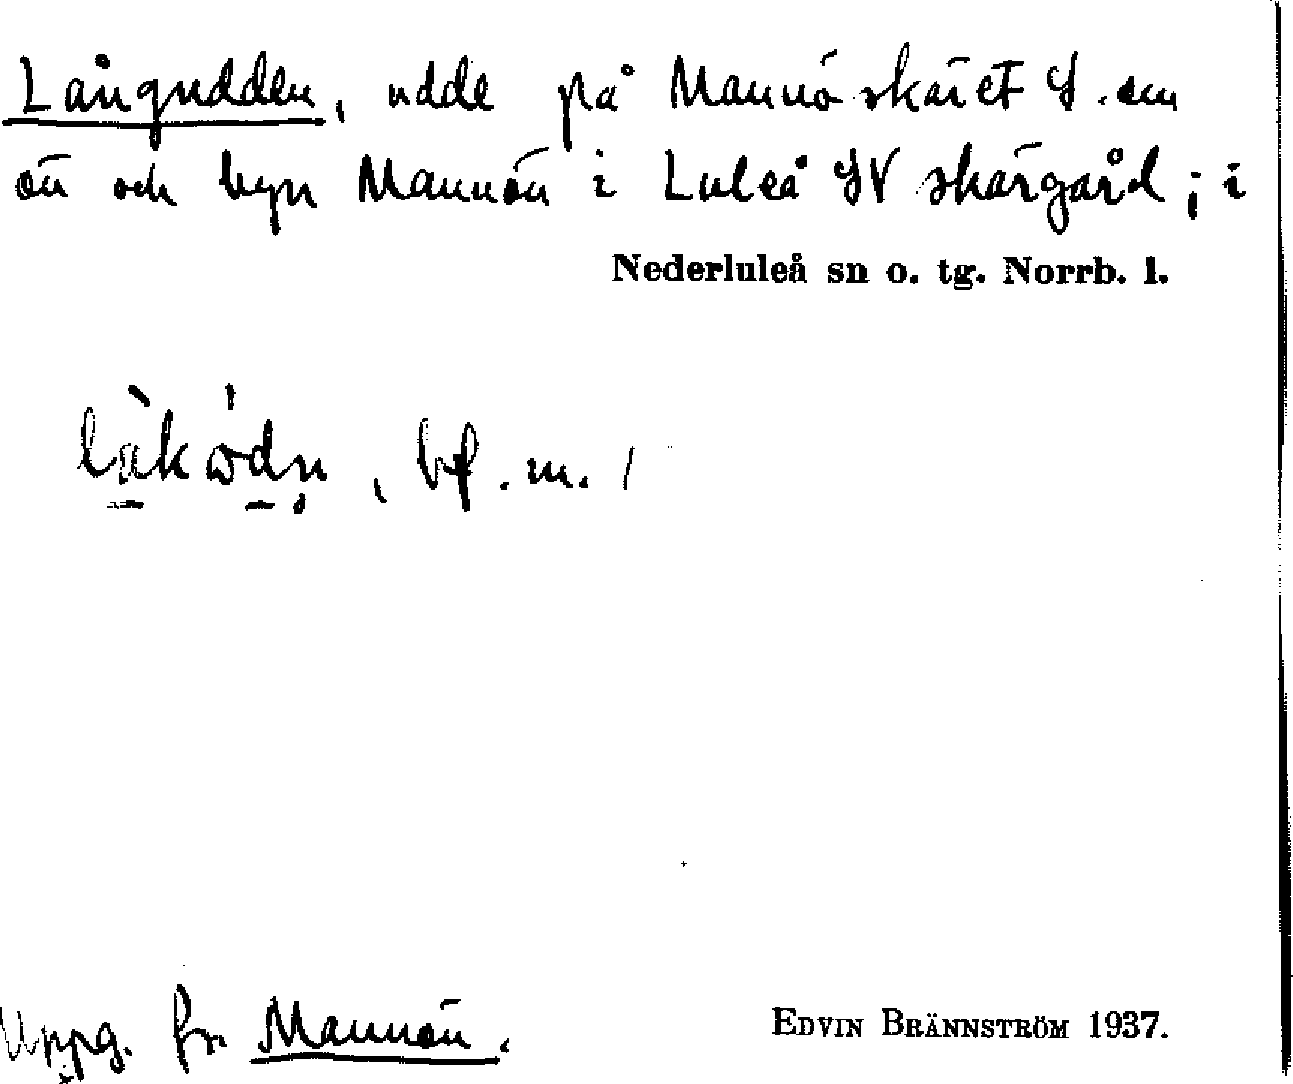 Långudden, udde på Mannöskäret S. om
ön och byn Mannön i Luleå SV skärgård; i
Nederluleå sn o. tg. Norrb. l.
bf. m.
Uppg. fr. Mannön.
EDVIN BRÄNNSTRÖM 1937.